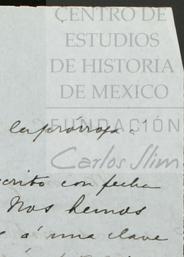 CENTRO DE
ESTUDIOS
DE HISTORIA
DE MEXICO
FUNDACIÓN
la prórroga.
Carlos Slim
crito con fecha
Nos hemos
á una clave